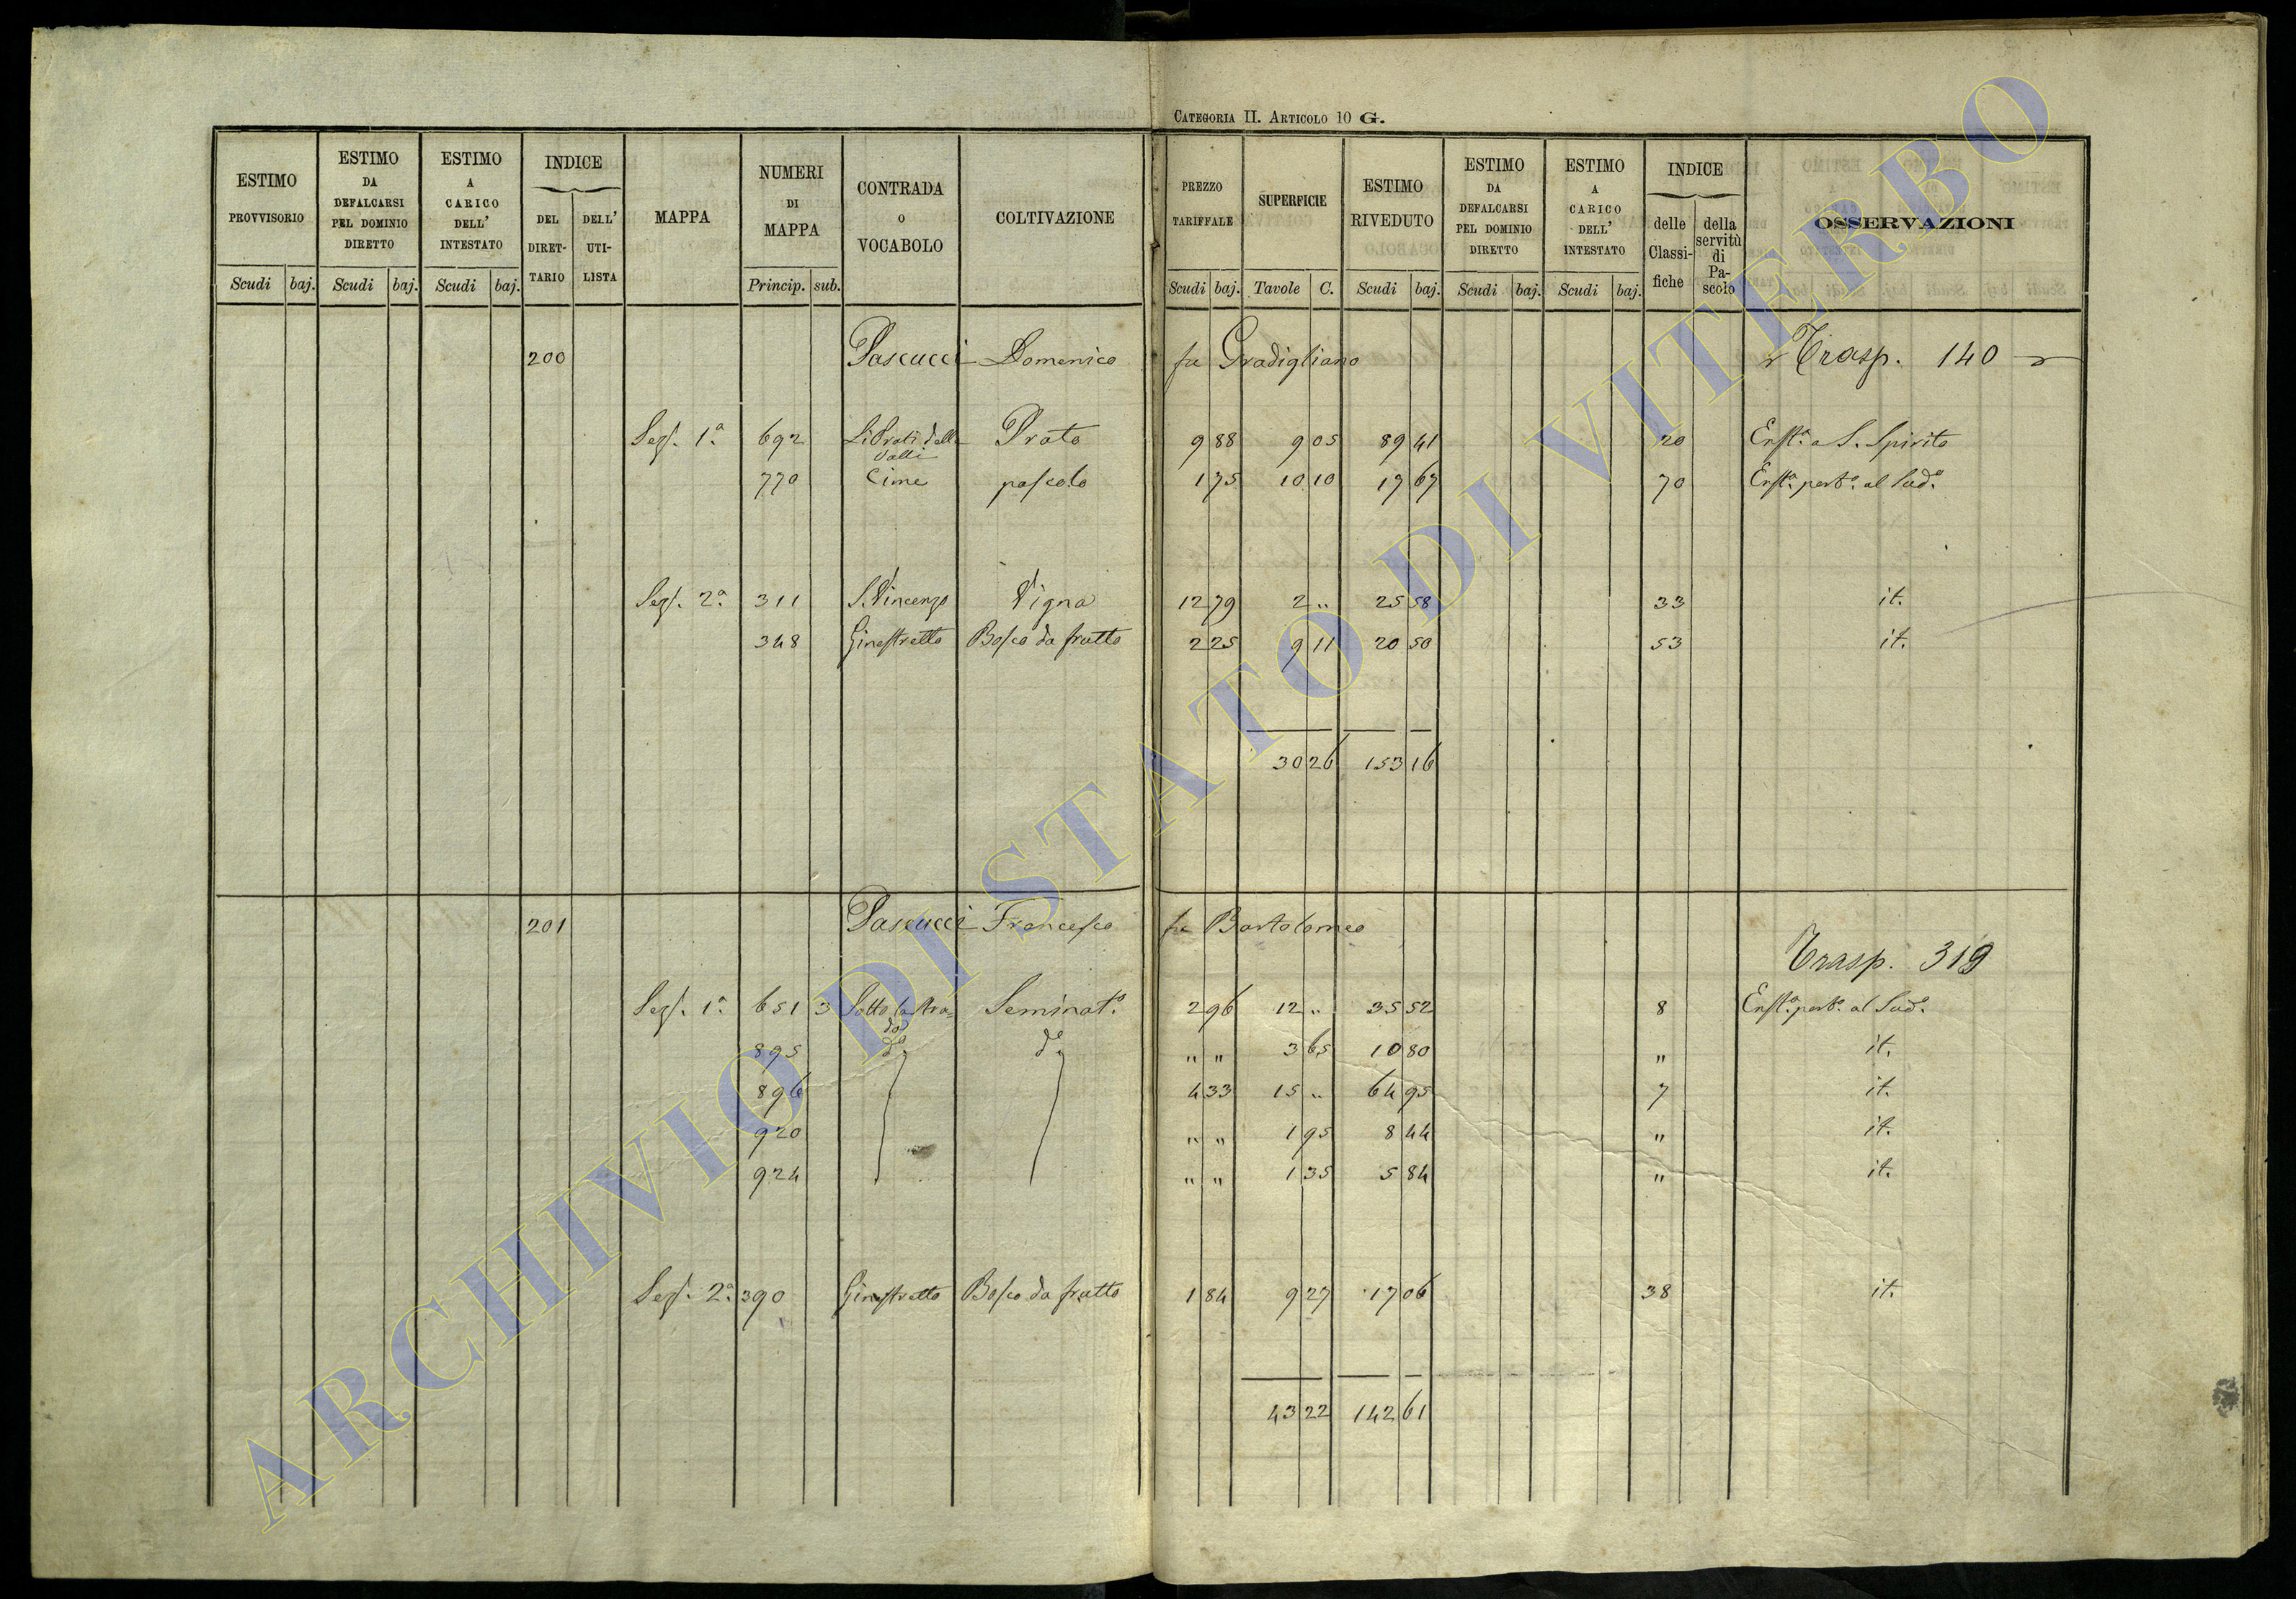 CATEGORIA II. ARTICOLO 10 G.
ESTIMO PROVVISORIO Scudi baj.
ESTIMO DA DEFALCARSI PEL DOMINIO DIRETTO Scudi baj.
ESTIMO A CARICO DELL' INTESTATO Scudi baj.
INDICE DEL DIRETTARIO DELL' UTILISTA
MAPPA
NUMERI DI MAPPA Princip. sub.
CONTRADA o VOCABOLO
COLTIVAZIONE
PREZZO TARIFFALE Scudi baj.
SUPERFICIE Tavole C.
ESTIMO RIVEDUTO Scudi baj.
ESTIMO DA DEFALCARSI PEL DOMINIO DIRETTO Scudi baj.
ESTIMO A CARICO DELL' INTESTATO Scudi baj.
INDICE delle Classifiche della servitù di Pascolo
OSSERVAZIONI
200 Pascucci Domenico fu Gradigliano Trasp. 140
Sez. 1ª 692 Li Prati delle Valli Prato 9 88 9 05 89 41 20 Enfta. a S. Spirito
770 Cime pascolo 1 75 10 10 17 67 70 Enfta. perta. al Sudo.
Sez. 2ª 311 S. Vincenzo Vigna 12 79 2 " 25 58 33 it.
348 Ginestretto Bosco da frutto 2 25 9 11 20 50 53 it.
30 26 153 16
201 Pascucci Francesco fu Bartolomeo
Trasp. 319
Sez. 1ª 651 3 Sotto la Strada Seminato. 2 96 12 " 35 52 8 Enfta. perta. al Sudo.
895 do. do. " " 3 65 10 80 " it.
896 4 33 15 " 64 95 7 it.
920 " " 1 95 8 44 " it.
924 " " 1 35 5 84 " it.
Sez. 2ª 390 Ginestretto Bosco da frutto 1 84 9 27 17 06 38 it.
43 22 142 61
ARCHIVIO DI STATO DI VITERBO